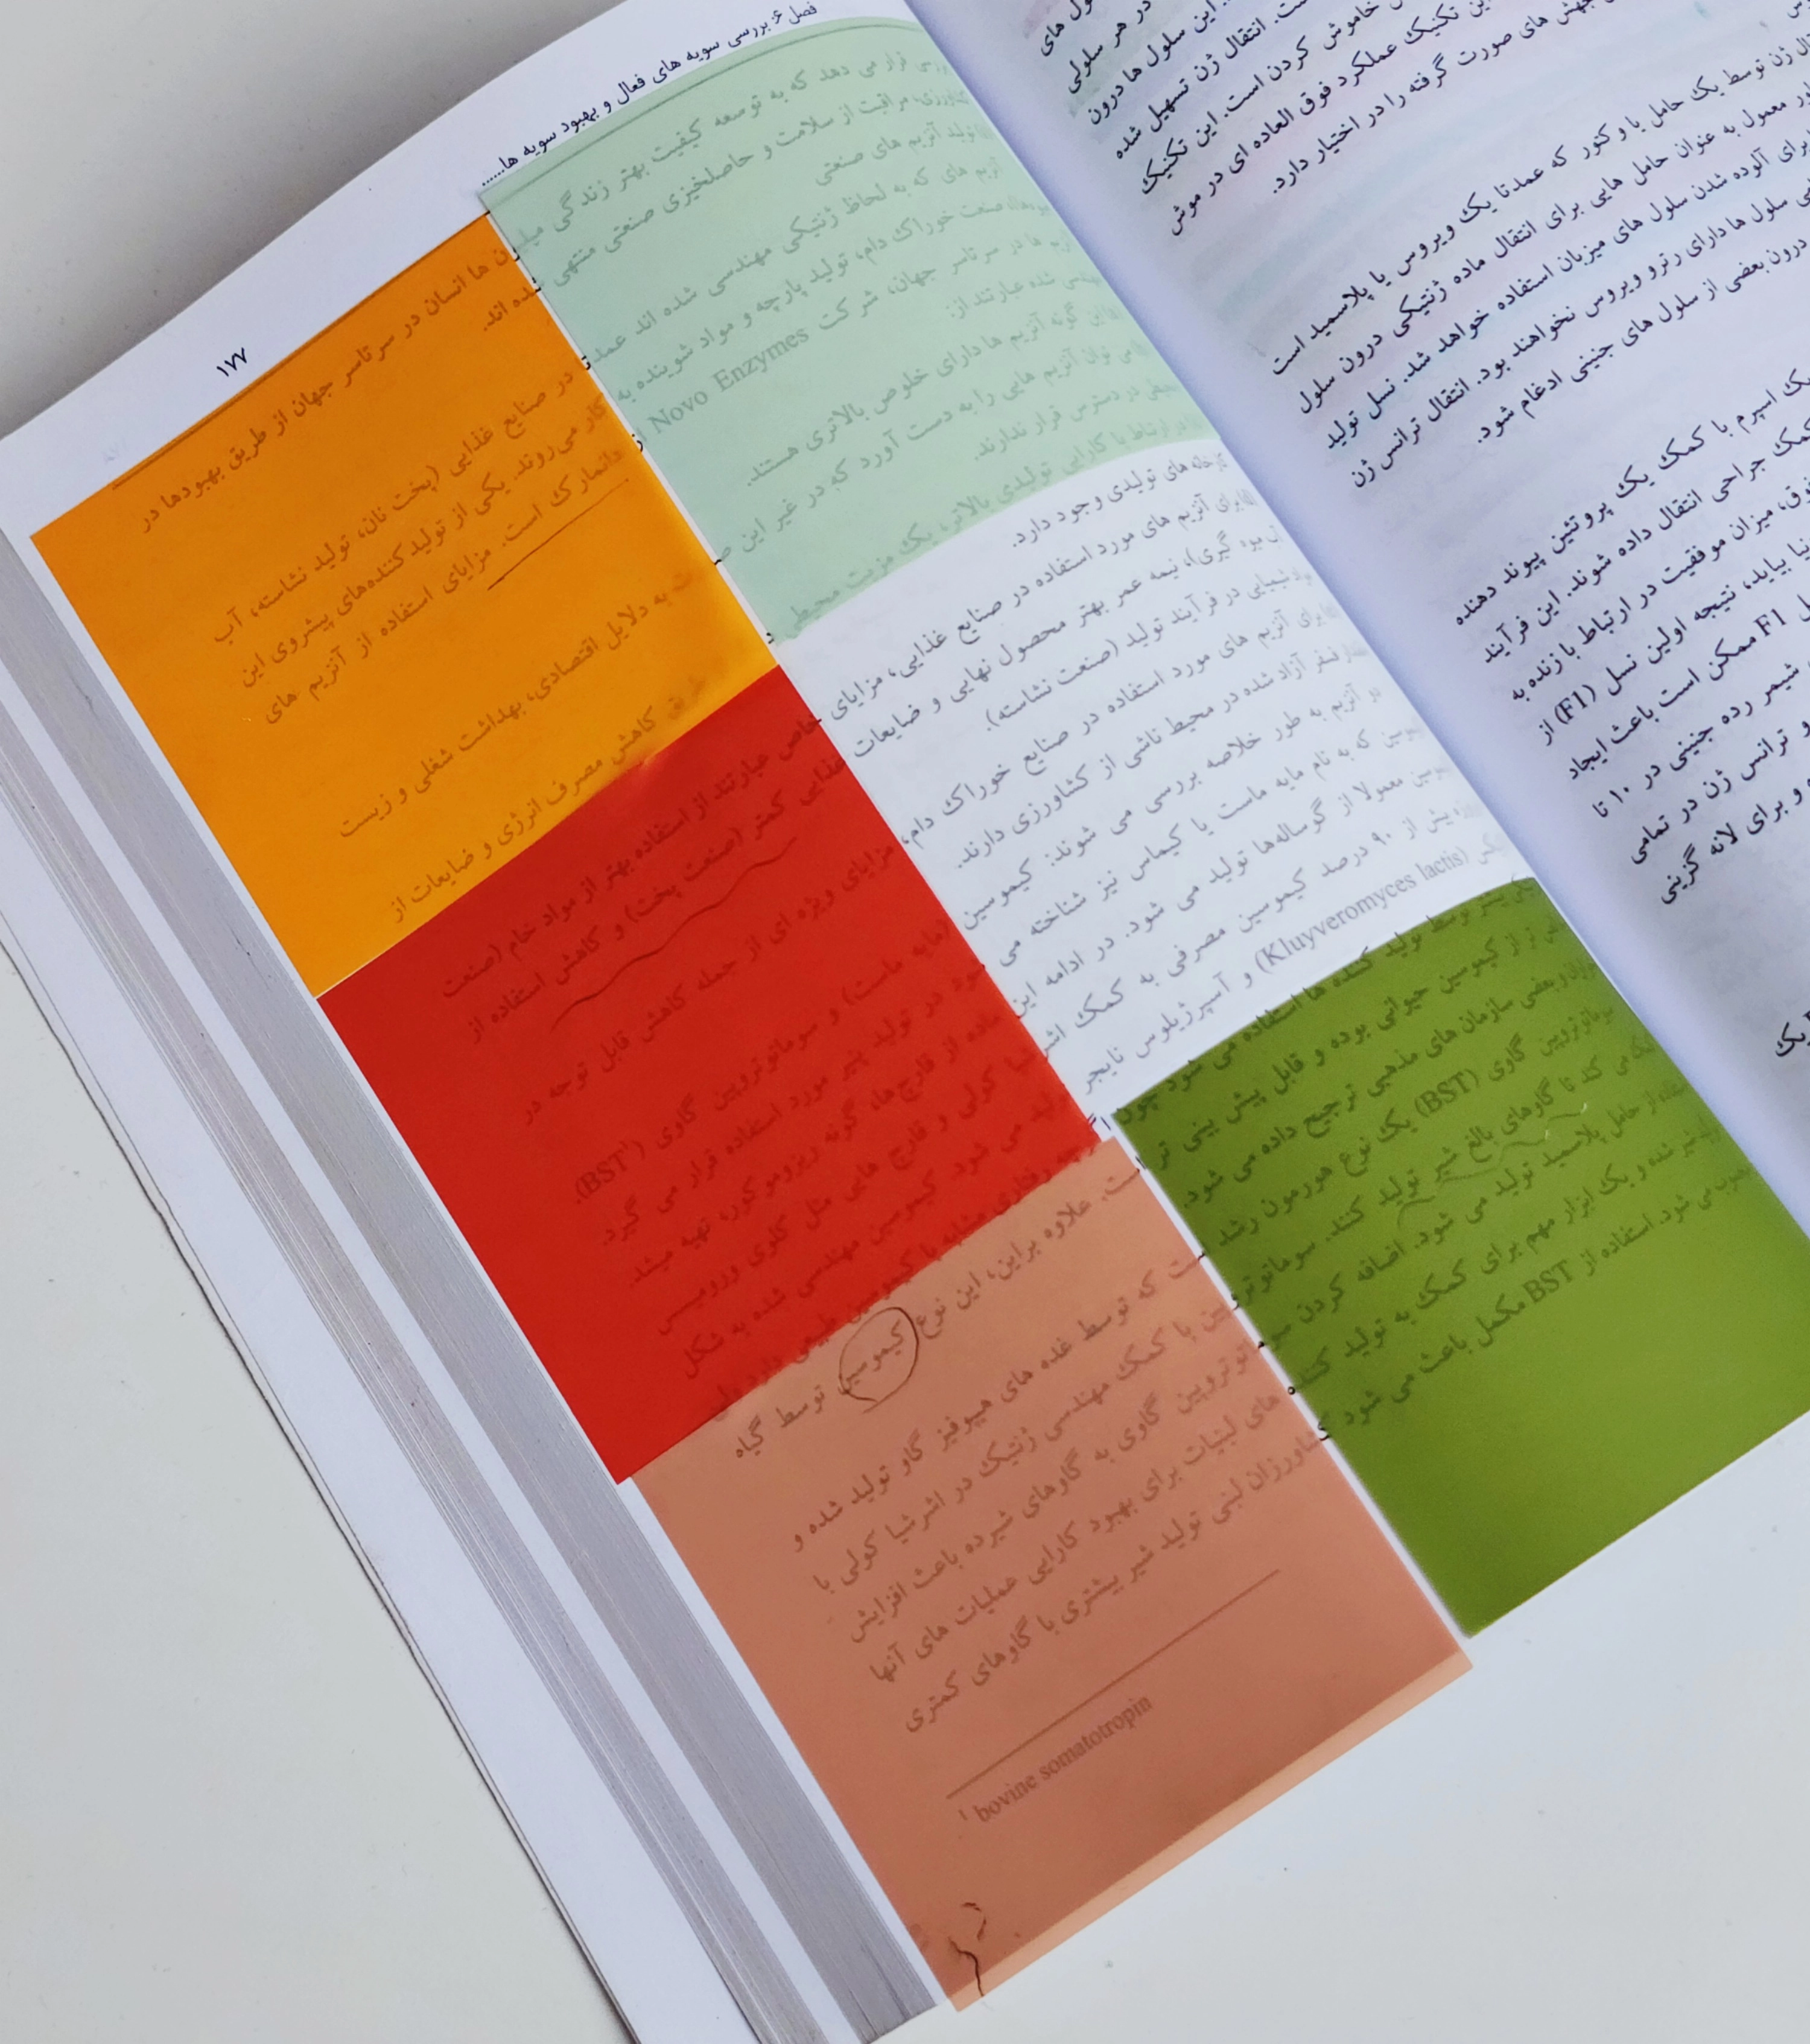 سلول های
در هر سلولی
این سلول ها درون
است. انتقال ژن تسهیل شده
خاموش کردن است. این تکنیک
این تکنیک عملکرد فوق العاده ای در موش
جهش های صورت گرفته را در اختیار دارد.
ژن توسط یک حامل یا وکتور که عمدتا یک ویروس یا پلاسمید است
معمول به عنوان حامل هایی برای انتقال ماده ژنتیکی درون سلول
برای آلوده شدن سلول های میزبان استفاده خواهد شد. نسل تولید
سلول ها دارای رترو ویروس نخواهند بود. انتقال ترانس ژن
درون بعضی از سلول های جنینی ادغام شود.
یک اسپرم با کمک یک پروتئین پیوند دهنده
کمک جراحی انتقال داده شوند. این فرآیند
فوق، میزان موفقیت در ارتباط با زنده به
بیاید، نتیجه اولین نسل (F1) از
F1 ممکن است باعث ایجاد
شیمر رده جنینی در ۱۰ تا
و ترانس ژن در تمامی
و برای لانه گزینی
یک
فصل ۶: بررسی سویه های فعال و بهبود سویه ها...... ۱۷۷
بررسی قرار می دهد که به توسعه کیفیت بهتر زندگی میلیون ها انسان در سرتاسر جهان از طریق بهبودها در
کشاورزی، مراقبت از سلامت و حاصلخیزی صنعتی منتهی شده اند.
تولید آنزیم های صنعتی
آنزیم های که به لحاظ ژنتیکی مهندسی شده اند عمدتا در صنایع غذایی (پخت نان، تولید نشاسته، آب
میوه ها)، صنعت خوراک دام، تولید پارچه و مواد شوینده به کار می‌روند. یکی از تولید کننده‌های پیشروی این
آنزیم ها در سرتاسر جهان، شرکت Novo Enzymes از دانمارک است. مزایای استفاده از آنزیم های
مهندسی شده عبارتند از:
این گونه آنزیم ها دارای خلوص بالاتری هستند.
می توان آنزیم هایی را به دست آورد که در غیر این صورت به دلایل اقتصادی، بهداشت شغلی و زیست
محیطی در دسترس قرار ندارند.
در ارتباط با کارایی تولیدی بالاتر، یک مزیت محیطی طریق کاهش مصرف انرژی و ضایعات از
کارخانه های تولیدی وجود دارد.
برای آنزیم های مورد استفاده در صنایع غذایی، مزایای خاص عبارتند از استفاده بهتر از مواد خام (صنعت
آب میوه گیری)، نیمه عمر بهتر محصول نهایی و ضایعات غذایی کمتر (صنعت پخت) و کاهش استفاده از
مواد شیمیایی در فرآیند تولید (صنعت نشاسته).
برای آنزیم های مورد استفاده در صنایع خوراک دام، مزایای ویژه ای از جمله کاهش قابل توجه در
مقدار فسفر آزاد شده در محیط ناشی از کشاورزی دارند.
دو آنزیم به طور خلاصه بررسی می شوند: کیموسین (مایه ماست) و سوماتوتروپین گاوی (BST¹).
کیموسین که به نام مایه ماست یا کیماس نیز شناخته می شود در تولید پنیر مورد استفاده قرار می گیرد.
کیموسین معمولا از گوساله‌ها تولید می شود. در ادامه این ماده از قارچ‌ها، گونه ریزوموکور، تهیه میشد.
بیش از ۹۰ درصد کیموسین مصرفی به کمک اشرشیا کولی و قارچ هایی مثل کلوی ورومیسس
(Kluyveromyces lactis) و آسپرژیلوس نایجر تولید می شود. کیموسین مهندسی شده به شکل
بیشتر توسط تولید کننده ها استفاده می شود چون اگرچه رفتاری مشابه با کیموسین طبیعی دارد ولی
تر از کیموسین حیوانی بوده و قابل پیش بینی تر است. علاوه براین، این نوع کیموسین توسط گیاه
خواران و بعضی سازمان های مذهبی ترجیح داده می شود.
سوماتوتروپین گاوی (BST) یک نوع هورمون رشد است که توسط غده های هیپوفیز گاو تولید شده و
کمک می کند تا گاوهای بالغ شیر تولید کنند. سوماتوتروپین با کمک مهندسی ژنتیک در اشرشیا کولی با
استفاده از حامل پلاسمید تولید می شود. اضافه کردن سوماتوتروپین گاوی به گاوهای شیرده باعث افزایش
تولید شیر شده و یک ابزار مهم برای کمک به تولید کننده های لبنیات برای بهبود کارایی عملیات های آنها
محسوب می شود. استفاده از BST مکمل باعث می شود کشاورزان لبنی تولید شیر بیشتری با گاوهای کمتری
¹ bovine somatotropin